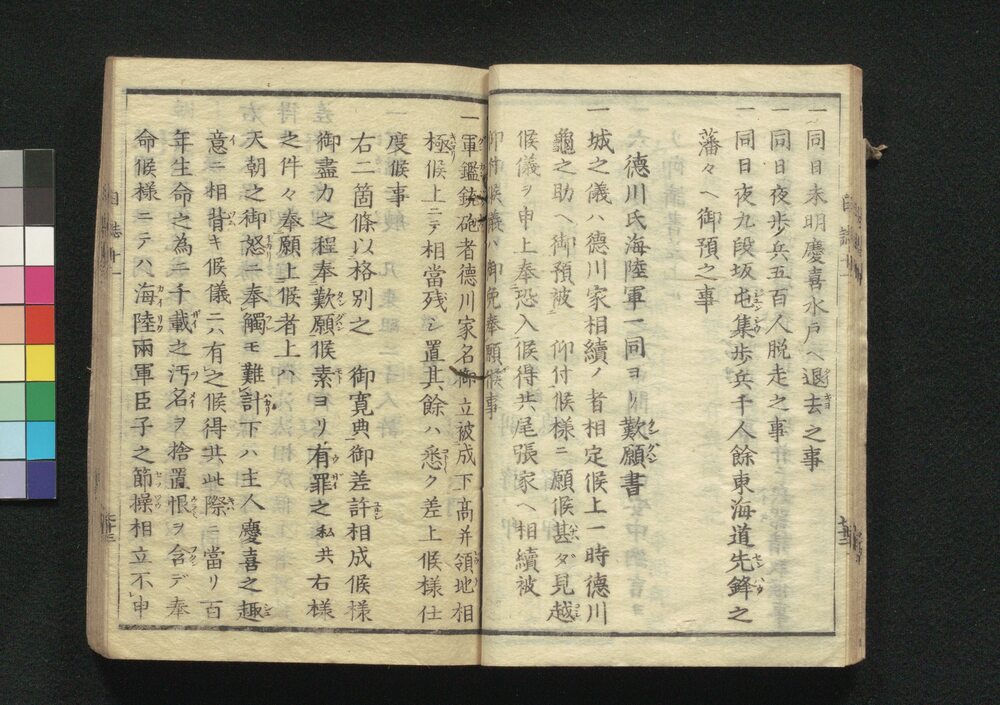 一同日未明慶喜水戸ヘ退去之事
一同日夜歩兵五百人脱走之事
一同日夜九段坂屯集歩兵千人餘東海道先鋒之
藩々ヘ御預之事
徳川氏海陸軍一同ヨリ歎願書
一城之儀ハ徳川家相續ノ者相定候上一時徳川
龜之助ヘ御預被 仰付候様ニ願候甚ダ見越
候儀ヲ申上奉恐入候得共尾張家ヘ相續被
仰付候義ハ御免奉願候事
一軍鑑銃砲者徳川家名御立被成下高并領地相
極候上ニテ相當残シ置其餘ハ悉ク差上候様仕
度候事
右二箇條以格別之 御寛典御差許相成候様
御盡力之程奉歎願候素ヨリ有罪之私共右様
之件々奉願上候者上ハ
天朝之御怒ニ奉觸モ難計下ハ主人慶喜之趣
意ニ相背キ候儀ニハ有之候得共此際ニ當リ百
年生命之為ニ千載之汚名ヲ捨置恨ヲ含デ奉
命候様ニテハ海陸兩軍臣子之節操相立不申